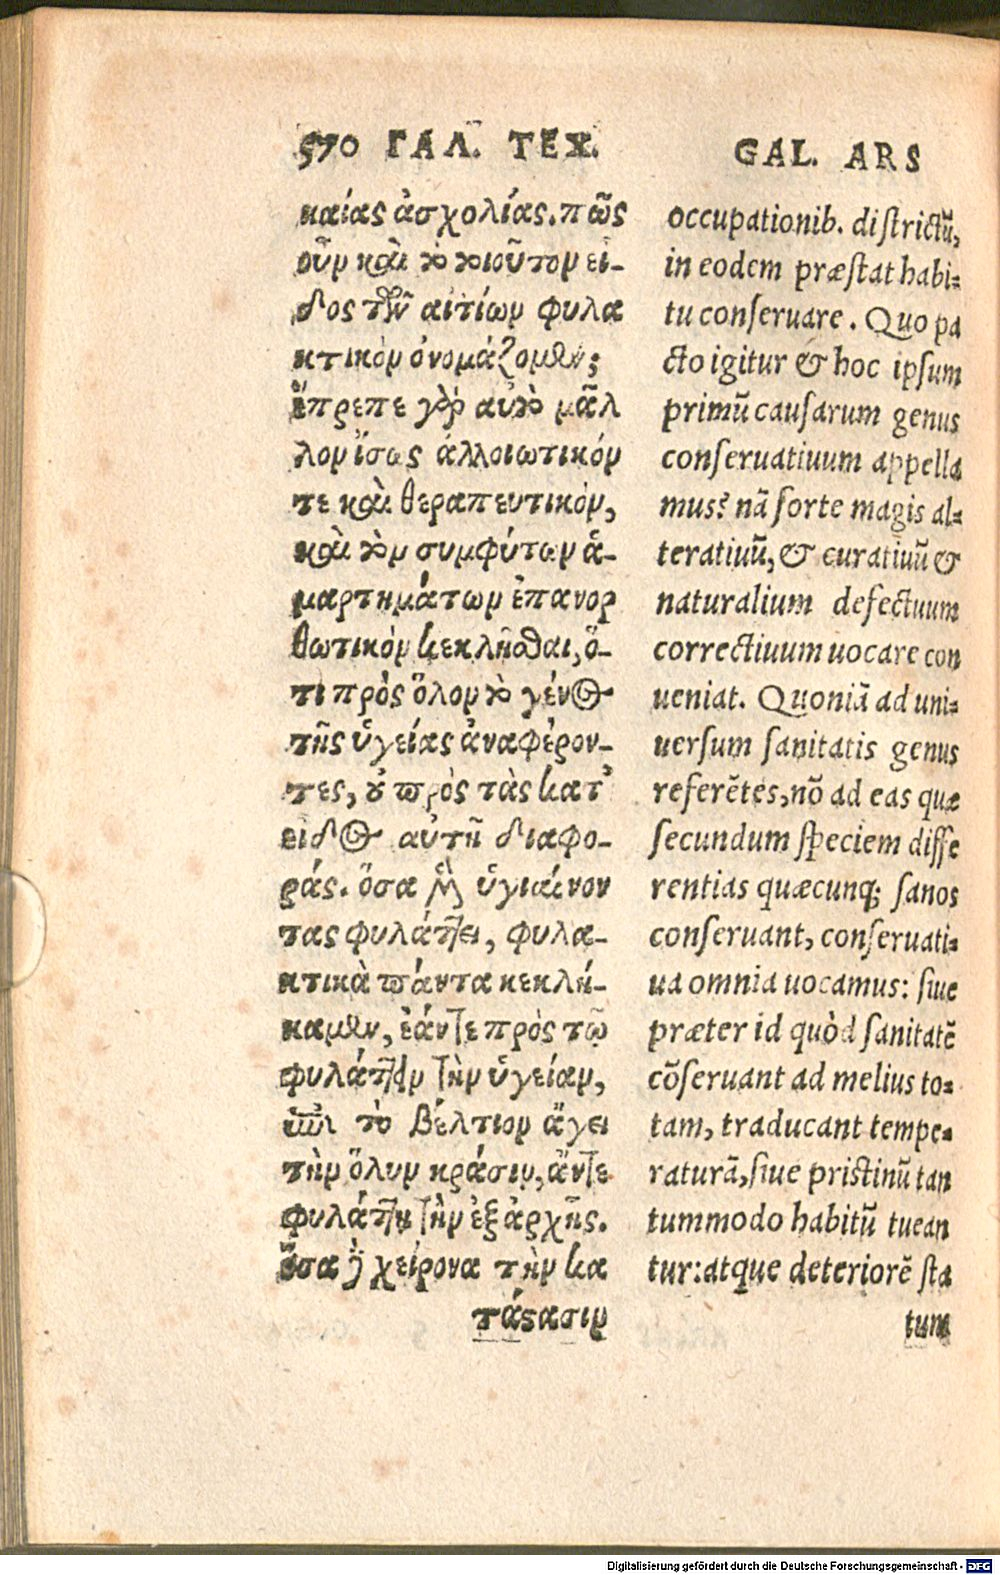 570 ΓΑΛ. ΤΕΧ.
καίας ἀσχολίας. πῶς
οὖν καὶ τὸ τοιοῦτον εἶ-
δος τῶν αἰτίων φυλα
κτικὸν ὀνομάζομεν;
ἔπρεπε γὰρ αὐτὸ μᾶλ
λον ἴσως ἀλλοιωτικόν
τε καὶ θεραπευτικὸν,
καὶ τὸν συμφύτων ἁ-
μαρτημάτων ἐπανορ
θωτικὸν κεκλῆσθαι, ὅ-
τι πρὸς ὅλον τὸ γένος
τῆς ὑγείας ἀναφέρον-
τες, οὐ πρὸς τὰς κατ'
εἶδος αὐτῆ διαφο-
ράς. ὅσα μὲν ὑγιαίνον
τας φυλάττει, φυλα-
κτικὰ πάντα κεκλή-
καμεν, ἐάντε πρὸς τῷ
φυλάττειν τὴν ὑγείαν,
ἐπὶ τὸ βέλτιον ἄγει
τὴν ὅλην κρᾶσιν, ἄντε
φυλάττῃ τὴν ἐξ ἀρχῆς.
ὅσα δὲ χείρονα τὴν κα
τάστασιν
GAL. ARS
occupationib. districtũ,
in eodem præstat habi=
tu conseruare. Quo pa
cto igitur & hoc ipsum
primũ causarum genus
conseruatiuum appella
mus? nã forte magis al=
teratiuũ, & curatiuũ &
naturalium defectuum
correctiuum uocare con
ueniat. Quoniã ad uni=
uersum sanitatis genus
referẽtes, nõ ad eas quæ
secundum speciem diffe
rentias quæcunq; sanos
conseruant, conseruati=
ua omnia uocamus: siue
præter id quòd sanitatẽ
cõseruant ad melius to=
tam, traducant tempe=
raturã, siue pristinũ tan
tummodo habitũ tuean
tur: atque deteriorẽ sta
tum
Digitalisierung gefördert durch die Deutsche Forschungsgemeinschaft - DFG